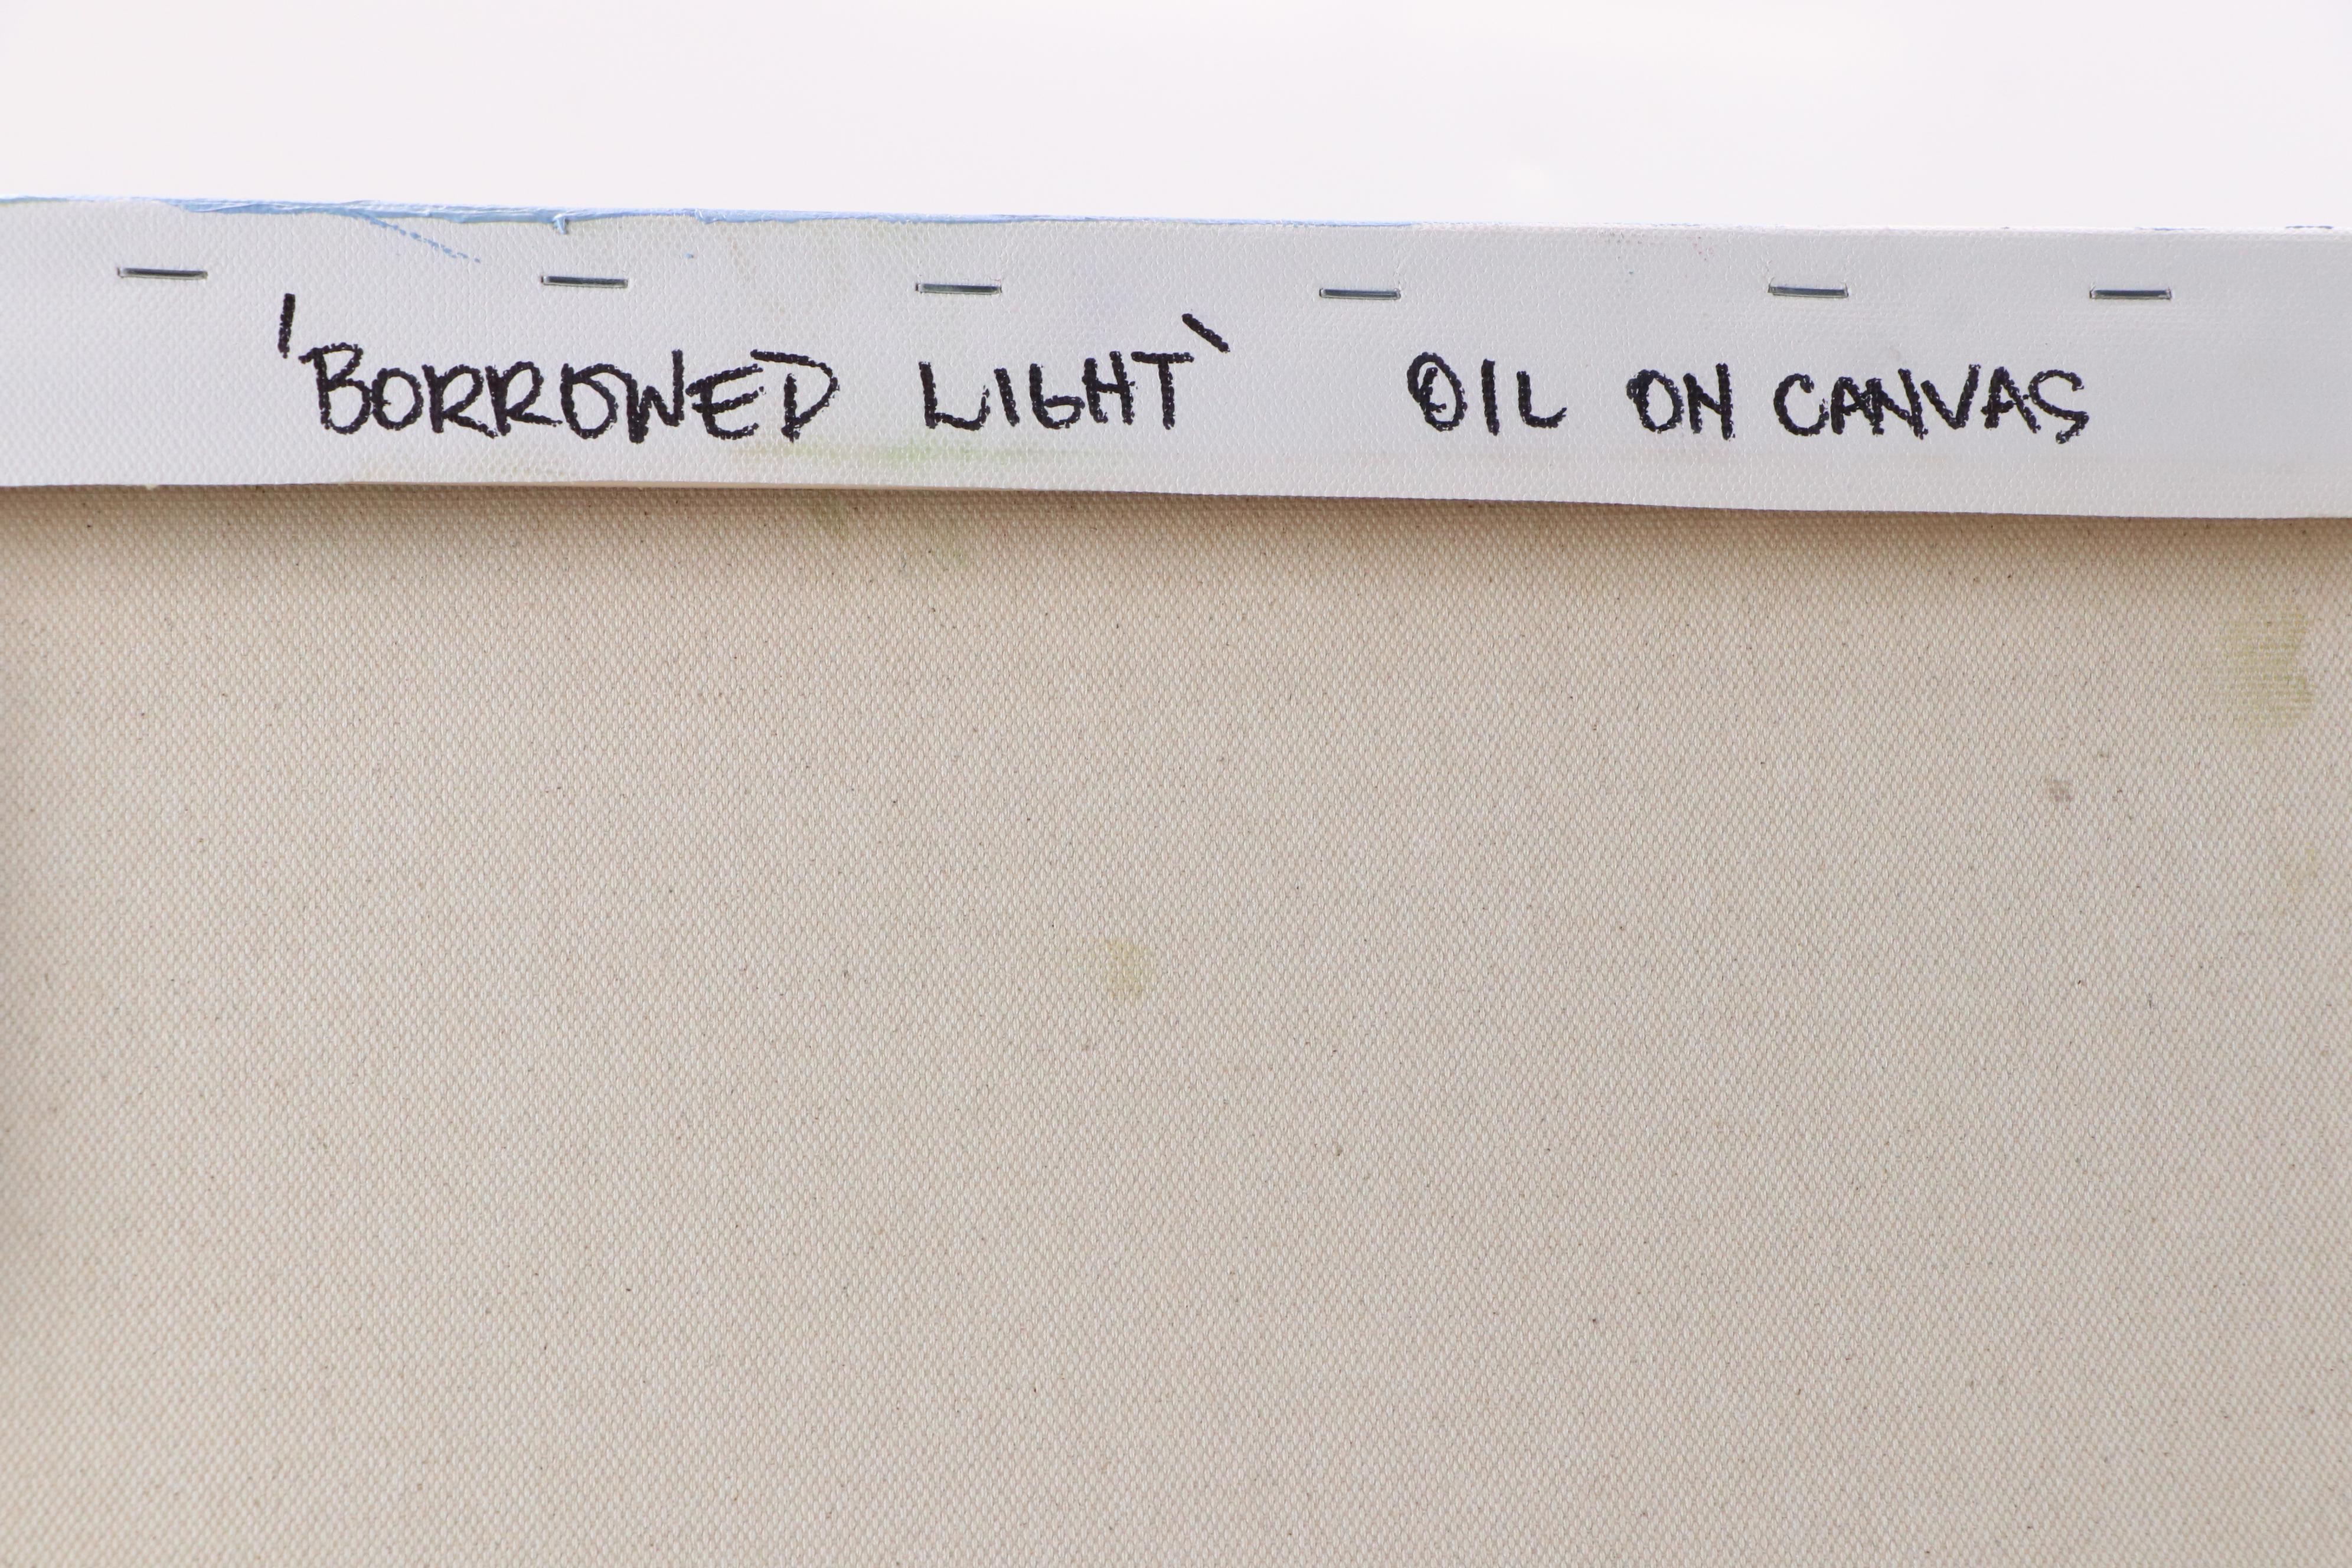 'BORROWED LIGHT' OIL ON CANVAS